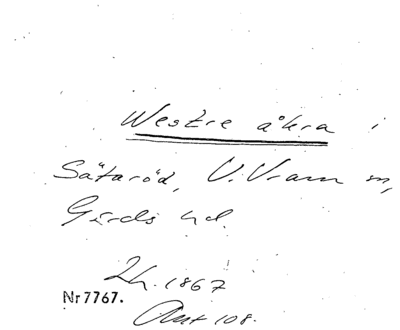 Westre åkra i
Sätaröd, V. Vram sn,
Gärds hd.
Lh. 1867
Nr 7767.
Ant 108.